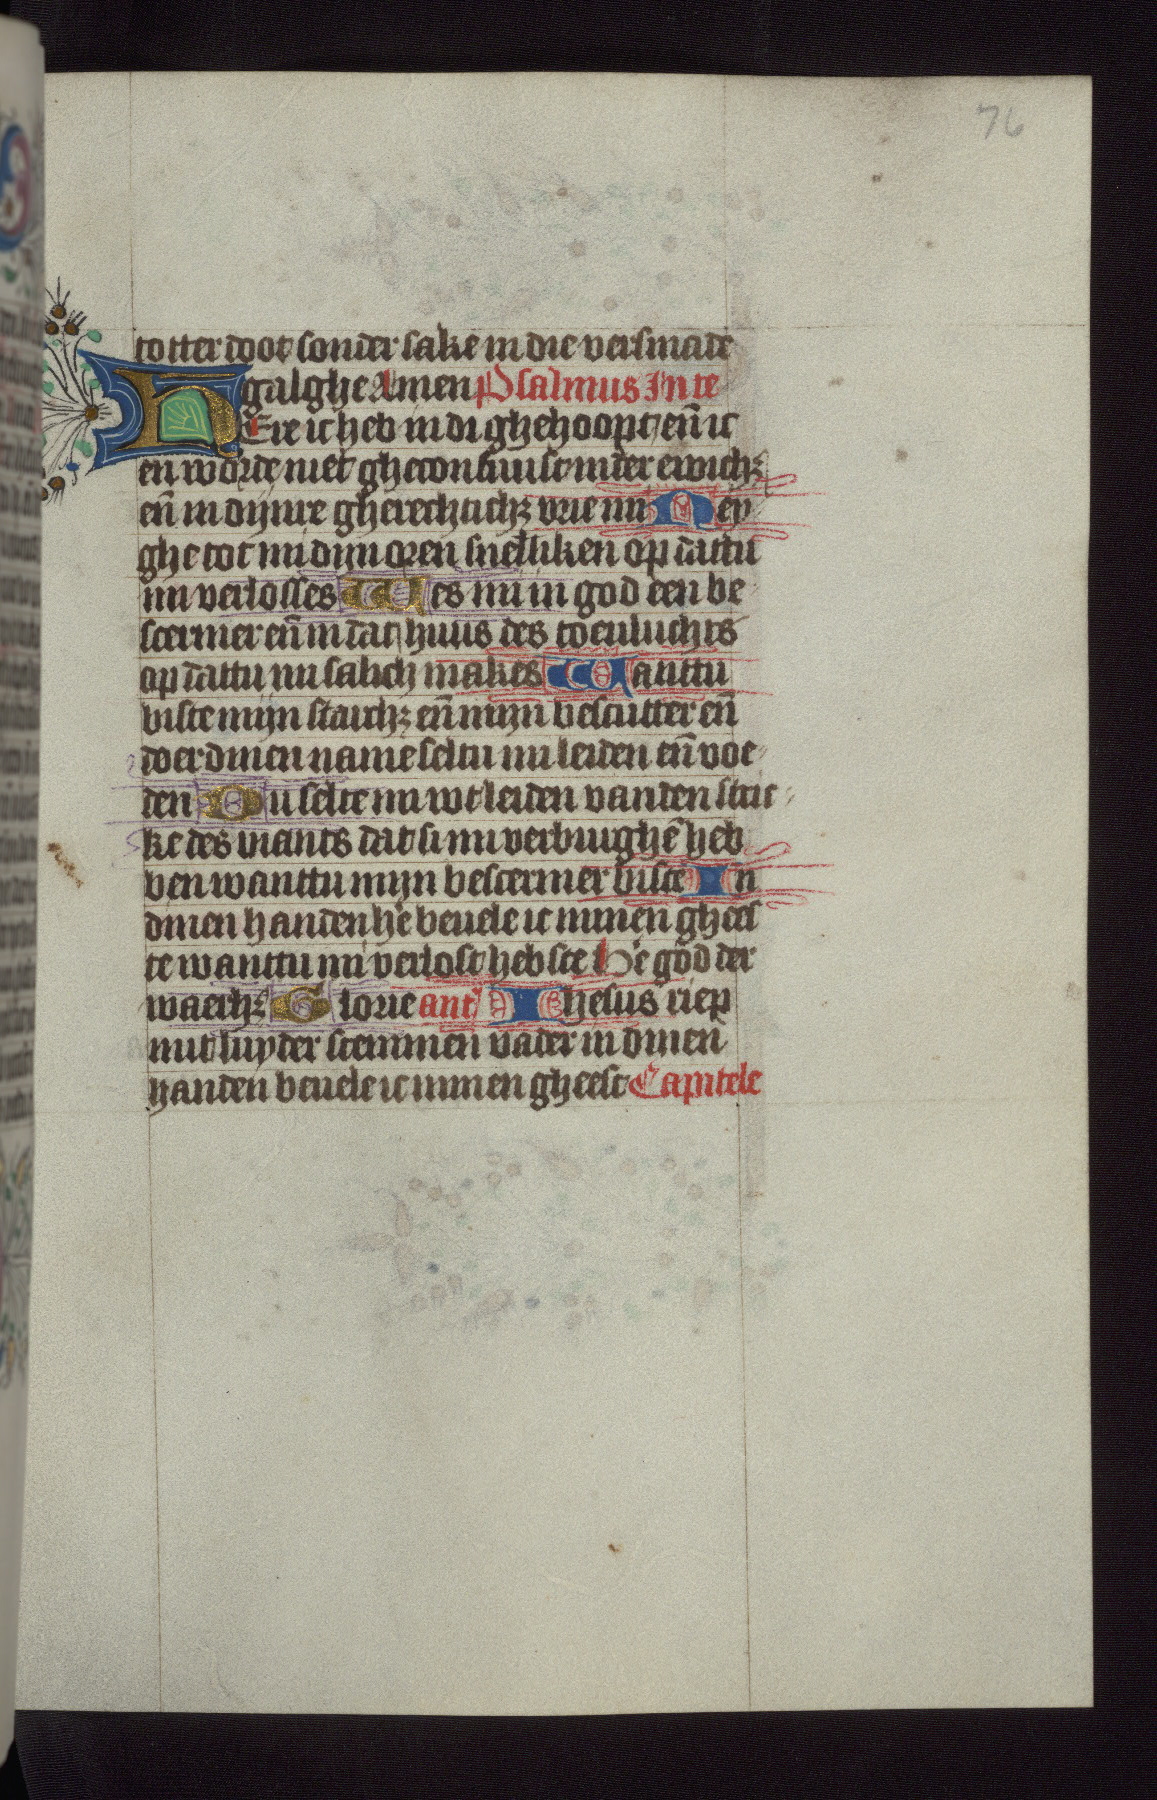 76
totter doot sonder sake in die versmade
galghe Amen Psalmus In te
HEre ic heb in di ghehoopt eñ ic
en worde niet gheconfuust in der ewichꝫ
eñ in dijnre gherechticꝫ vrie mi Ney
ghe tot mi dijn oren snelliken op dattu
mi verlosses Wes mi in god een be
scermer eñ in dat huus des toeuluchts
op dattu mi salich makes Wanttu
biste mijn starcꝫ eñ mijn bescutter eñ
doer dinen name seltu mi leiden eñ voe
den Du selte mi wt leiden vanden stric
ke des viants dat si mi verburghē heb
ben wanttu mijn bescermer biste In
dinen handen he beuele ic minen ghees
te wanttu mi verlost hebste He god der
waerhꝫ Glorie ant Ihesus riep
mit luyder stemmen vader in dinen
handen beuele ic minen gheest Capitele